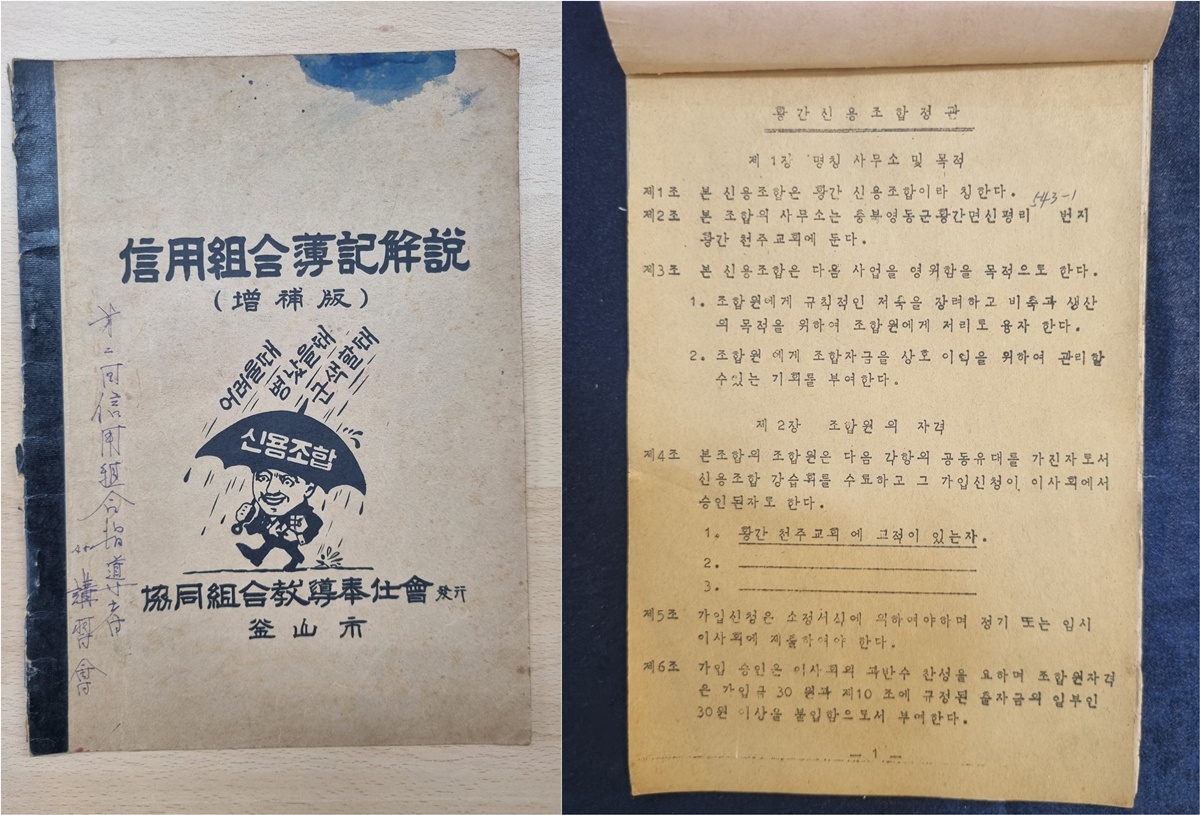 信用組合簿記解説
(増補版)
돈들일때
병났을때
군색할때
신용조합
協同組合教導奉仕會 発行
釜山市
第二回信用組合指導者
講習會
황간신용조합정관
제1장 명칭 사무소 및 목적
제1조 본 신용조합은 황간 신용조합이라 칭한다.
543-1
제2조 본 조합의 사무소는 충북영동군황간면신평리 번지
황간 천주교회에 둔다.
제3조 본 신용조합은 다음 사업을 영위함을 목적으로 한다.
1. 조합원에게 규칙적인 저축을 장려하고 비축과 생산
의 목적을 위하여 조합원에게 저리로 융자 한다.
2. 조합원 에게 조합자금을 상호 이익을 위하여 관리할
수있는 기회를 부여한다.
제2장 조합원의 자격
제4조 본조합의 조합원은 다음 각항의 공동유대를 가진자로서
신용조합 강습회를 수료하고 그 가입신청이 이사회에서
승인된자로 한다.
1. 황간 천주교회 에 교적이 있는자.
2.
3.
제5조 가입신청은 소정서식에 의하여야하며 정기 또는 임시
이사회에 제출하여야 한다.
제6조 가입 승인은 이사회의 과반수 찬성을 요하며 조합원자격
은 가입금 30원과 제10 조에 규정된 출자금의 일부인
30원 이상을 불입함으로서 부여한다.
- 1 -